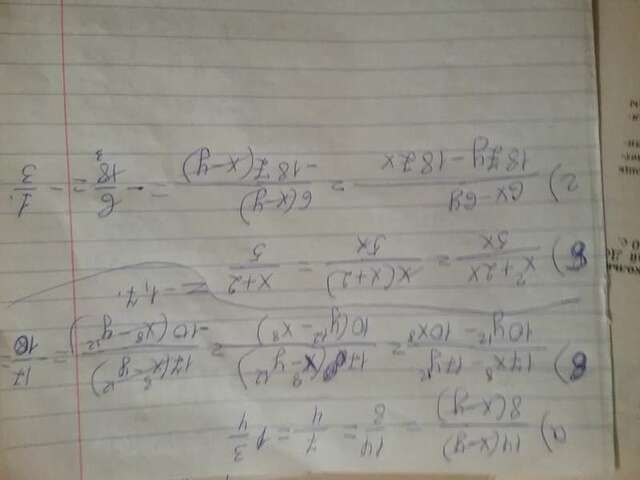 а) 14(x-y)/8(x-y) = 14/8 = 7/4 = 1 3/4
в) 17x⁸ - 17y¹²/10y¹² - 10x⁸ = 17(x⁸-y¹²)/10(y¹²-x⁸) = 17(x⁸-y¹²)/-10(x⁸-y¹²) = -17/10 =
= -1,7.
б) x²+2x/5x = x(x+2)/5x = x+2/5
г) 6x-6y/187y-187x = 6(x-y)/-187(x-y) = -6/18 3 = -1/3